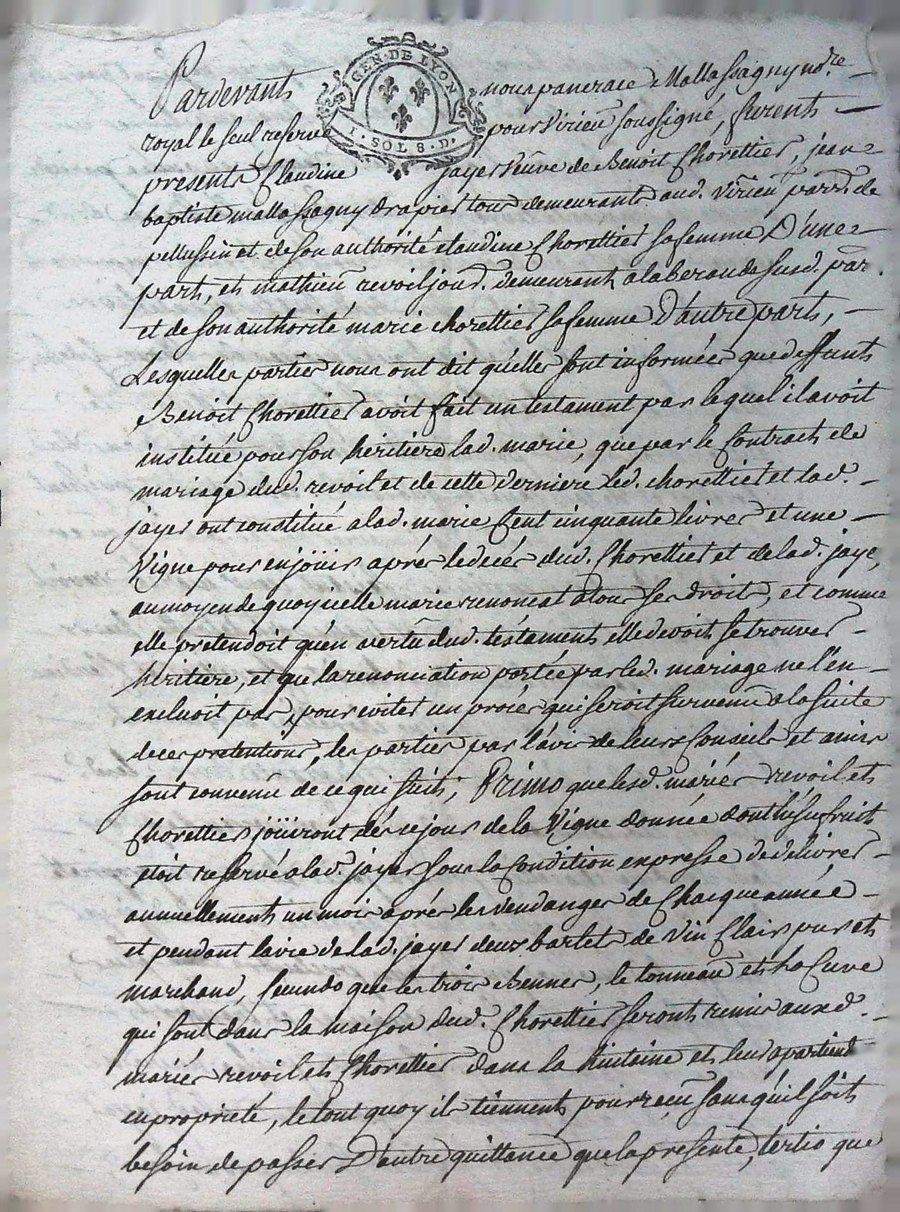 GEN. DE LYON
1. SOL 8. D.
Pardevant nous pancrace Mallassagny nore
royal le seul reservé pour virieu soussigné, furent
presents Claudine jayer veuve de Benoit Chorettier, jean
baptiste mallassagny drapier tous demeurants aud. virieu parr. de
pellussin et de son authorité claudine Chorettier sa femme D'une
part, et mathieu revoil jour. demeurant a la beraude susd. parr.
et de son authorité marie chorettier sa femme D'autre part,
Lesquelles parties nous ont dit qu'elles sont informées que deffunt
Benoit Chorettier avoit fait un testament par lequel il avoit
institué pour son héritiere lad. marie, que par le Contract de
mariage dud. revoil et de cette derniere led. chorettier et lad.
jayer ont constitué a lad. marie Cent cinquante livres et une
Vigne pour en joüir aprés le decés dud. Chorettier et de lad. jayer,
au moyen de quoy icelle marie renoncat a tous ses droits, et comme
elle pretendoit qu'en vertu dud. testament elle devoit se trouver
héritiere, et que la renonciation portée par led. mariage ne l'en
excluoit pas, pour eviter un procés qui seroit survenu a la suite
de ces pretentions, les parties par l'avis de leurs Conseils et amis
sont convenu de ce qui suit; Primo que lesd. mariés revoil et
Chorettier joüiront dés ce jour de la Vigne donnée dont l'usufruit
etoit reservé a lad. jayer sous la Condition expresse de delivrer
annuellement un mois aprés les vendanges de Chacque année
et pendant la vie de lad. jayer deux barlet de vin Clair pur et
marchand, secundo que les trois Bennes, le tonneau et la Cuve
qui sont dans la maison dud. Chorettier seront remis auxd.
mariés revoil et Chorettier dans la huitaine et leur apartiend
en propriété, le tout quoy ils tiennent pour reçu sans qu'il soit
besoin de passer D'autre quittance que la presente, tertio que